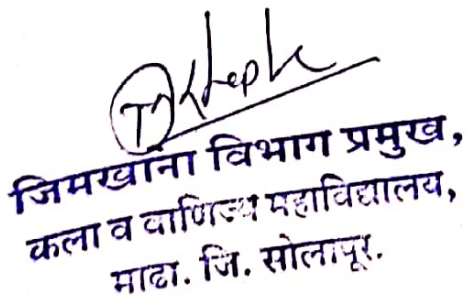 जिमखाना विभाग प्रमुख,
कला व वाणिज्य महाविद्यालय,
माढा. जि. सोलापूर.